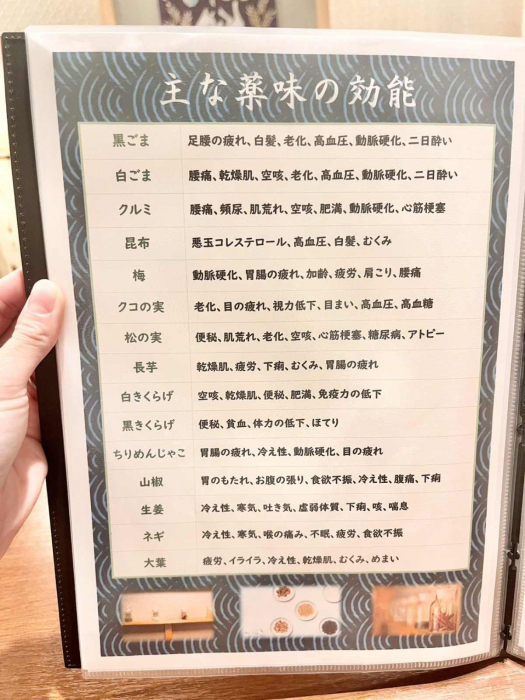 主な薬味の効能
黒ごま 足腰の疲れ、白髪、老化、高血圧、動脈硬化、二日酔い
白ごま 腰痛、乾燥肌、空咳、老化、高血圧、動脈硬化、二日酔い
クルミ 腰痛、頻尿、肌荒れ、空咳、肥満、動脈硬化、心筋梗塞
昆布 悪玉コレステロール、高血圧、白髪、むくみ
梅 動脈硬化、胃腸の疲れ、加齢、疲労、肩こり、腰痛
クコの実 老化、目の疲れ、視力低下、目まい、高血圧、高血糖
松の実 便秘、肌荒れ、老化、空咳、心筋梗塞、糖尿病、アトピー
長芋 乾燥肌、疲労、下痢、むくみ、胃腸の疲れ
白きくらげ 空咳、乾燥肌、便秘、肥満、免疫力の低下
黒きくらげ 便秘、貧血、体力の低下、ほてり
ちりめんじゃこ 胃腸の疲れ、冷え性、動脈硬化、目の疲れ
山椒 胃のもたれ、お腹の張り、食欲不振、冷え性、腹痛、下痢
生姜 冷え性、寒気、吐き気、虚弱体質、下痢、咳、喘息
ネギ 冷え性、寒気、喉の痛み、不眠、疲労、食欲不振
大葉 疲労、イライラ、冷え性、乾燥肌、むくみ、めまい